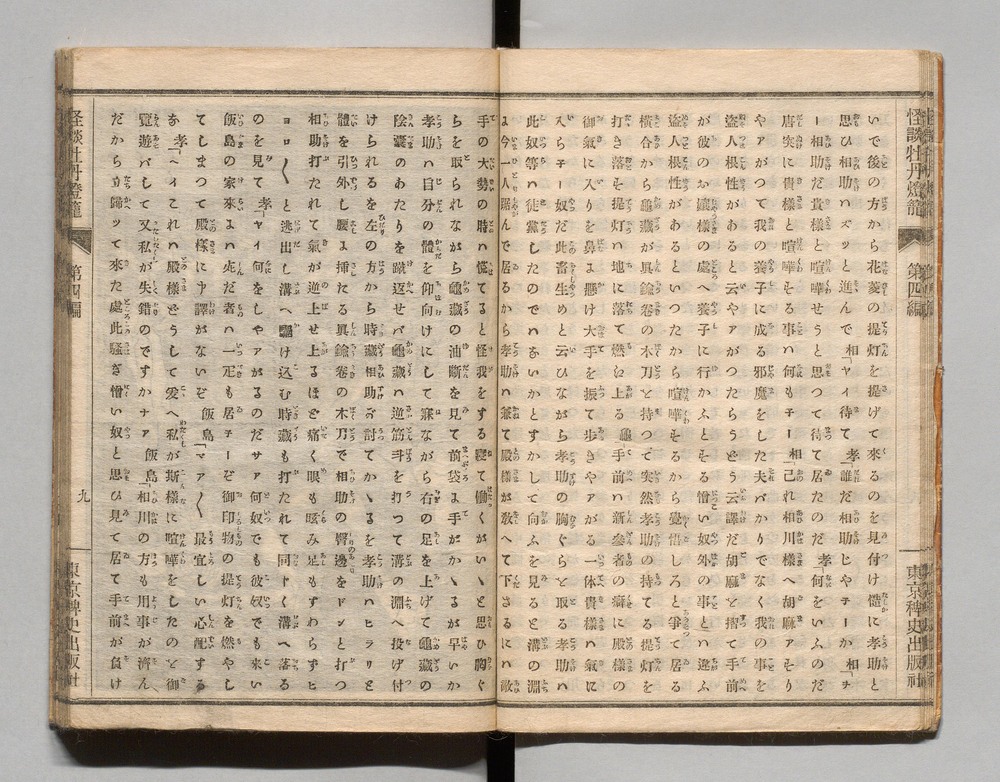 怪談牡丹燈籠 第四編 東京稗史出版社
いで後の方から花菱の提灯を提げて來るのを見付け慥に孝助と
思ひ相助ハズッと進んで 相「ヤイ待て 孝「誰だ相助じやチーか 相「チ
ー相助だ貴様と喧嘩せうと思つて待て居たのだ 孝「何をいふのだ
唐突に貴様と喧嘩そる事ハ何もチー 相「己れ相川様へ胡麻アそり
やアがつて我の養子に成る邪魔をした夫バかりでなく我の事を
盜人根性があると云やアがつたらうどう云譯だ胡麻と摺て手前
が彼のお孃様の處へ養子に行かふとそる憎い奴外の事と違ふ
盜人根性があるといつたから喧嘩そるから覺悟しろと爭て居る
横合から龜藏が眞鍮卷の木刀と持つて突然孝助の持てる提灯を
打き落そ提灯ハ地に落て燃上る 龜「手前ハ新參者の癖に殿様の
御氣に入りを鼻よ懸け大手を振て歩きやアがる一体貴様ハ氣に
入らチー奴だ此畜生めと云ひながら孝助の胸ぐらと取る孝助ハ
此奴等ハ徒黨したのでハないかとすかして向ふを見ると溝の淵
よ今一人踞んで居るから孝助ハ兼て殿様が敎へて下さるに敵
手の大勢の時ハ慌てると怪我をする寢て働くがいゝと思ひ胸ぐ
らを取られながら龜藏の油斷を見て前袋よ手がかゝるが早いか
孝助ハ自分の體を仰向けにして寐ながら右の足を上げて龜藏の
陰嚢のあたりを蹴返せバ龜藏ハ逆筋斗を打つて溝の淵へ投げ付
けられるを左の方から時藏相助が討てかゝるを孝助ハヒラリと
體を引外し腰よ挿たる眞鍮卷の木刀で相助の臀邊をドンと打つ
相助打たれて氣が逆上せ上るほど痛く眼も眩み足もすわらずヒ
ョロ〱と逃出し溝へ駈け込む時藏も打たれて同トく溝へ落る
のを見て 孝「ヤイ何をしやアがるのだサァ何奴でも彼奴でも來い
飯島の家來よハ死だ者ハ一疋も居チーぞ御印物の提灯を燃やし
てしまつて殿様に申譯がないぞ 飯島「マア〱最宜しい心配する
な 孝「ヘイこれハ殿様どうして爰へ私が斯様に喧嘩をしたのと御
覽遊バして又私が失錯のですかナァ 飯島「相川の方も用事が濟ん
だから立歸ッて來た處此騷ぎ憎い奴と思ひ見て居て手前が負け
怪談牡丹燈籠 第四編 九 東京稗史出版社